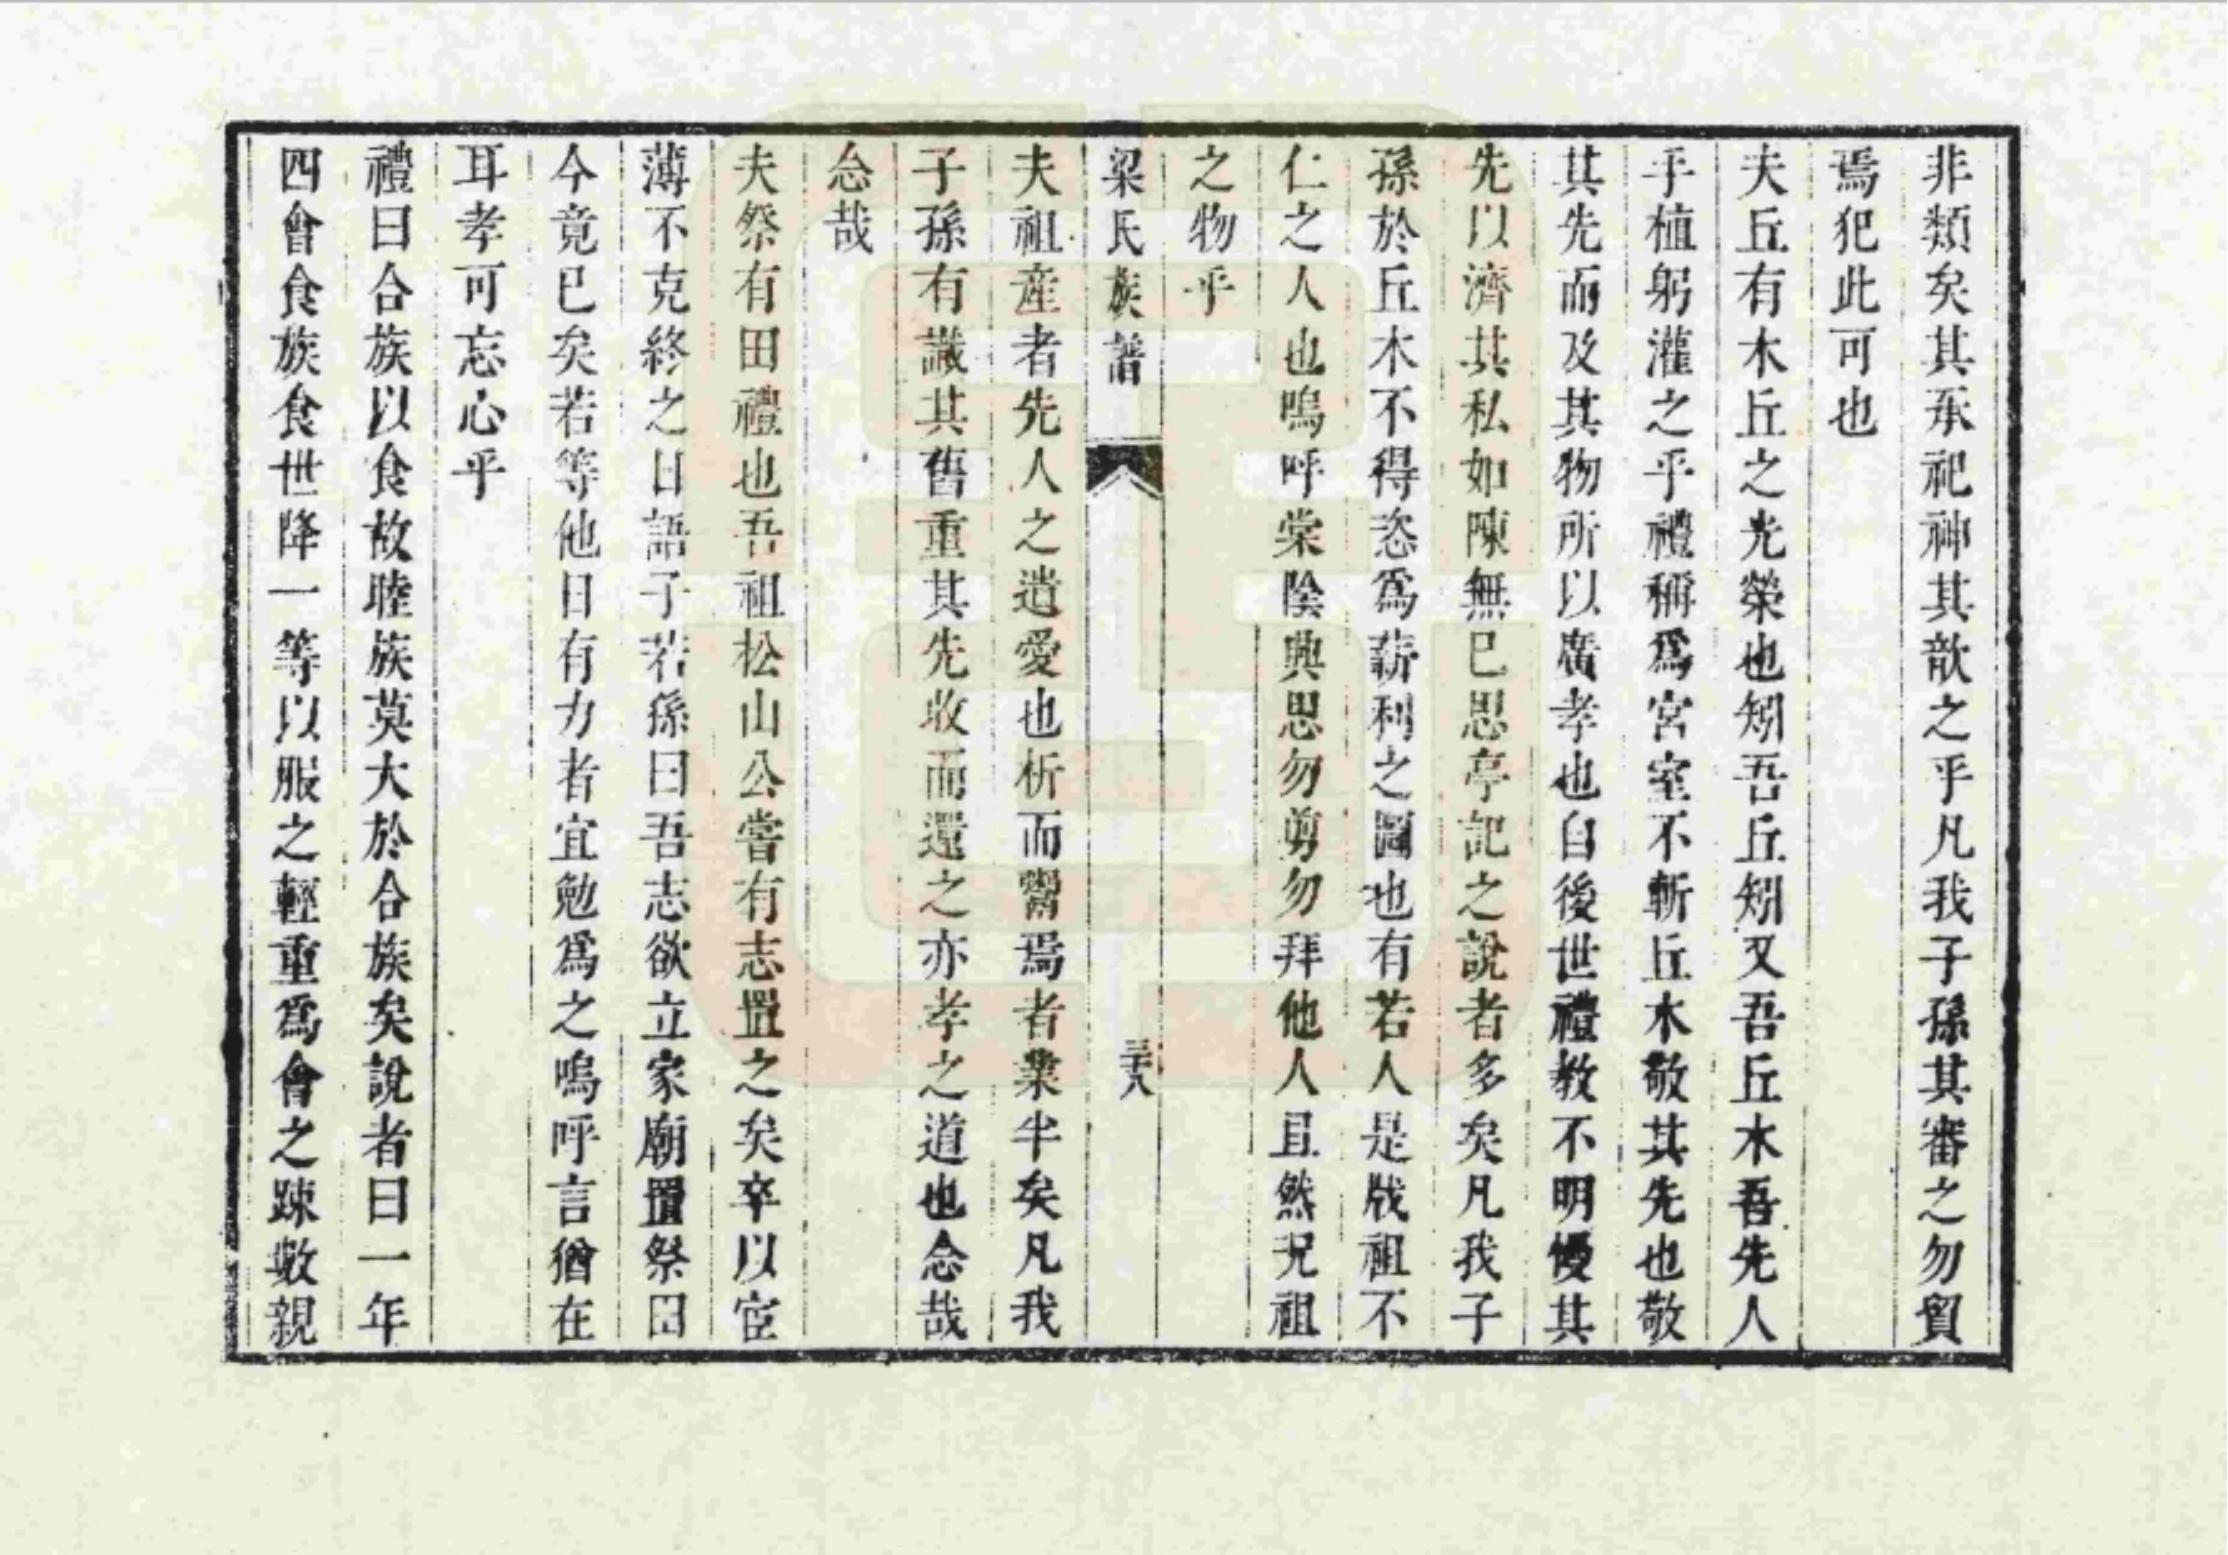 非類矣其承祀神其歆之乎凡我子孫其審之勿貿
焉犯此可也
夫丘有木丘之光榮也矧吾丘矧又吾丘木吾先人
手植躬灌之乎禮稱爲宮室不斬丘木敬其先也敬
其先而及其物所以廣孝也自後世禮教不明慢其
先以濟其私如陳無已思亭記之說者多矣凡我子
孫於丘木不得恣爲薪利之圖也有若人是戕祖不
仁之人也嗚呼棠陰興思勿剪勿拜他人且然況祖
之物乎
梁氏族譜
三十八
夫祖産者先人之遺愛也析而鬻焉者業半矣凡我
子孫有識其舊重其先收而還之亦孝之道也念哉
念哉
夫祭有田禮也吾祖松山公嘗有志置之矣卒以宦
薄不克終之日語子若孫曰吾志欲立家廟置祭田
今竟已矣若等他日有力者宜勉爲之嗚呼言猶在
耳孝可忘心乎
禮曰合族以食故睦族莫大於合族矣說者曰一年
四會食族食世降一等以服之輕重爲會之踈數親